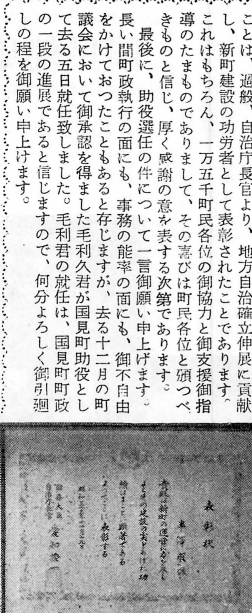 ことは、過般、自治庁長官より、地方自治確立伸展に貢献
し、新町建設の功労者として表彰されたことであります。
これはもちろん、一万五千町民各位の御協力と御支援御指
導のたまものでありまして、その喜びは町民各位と頒つべ
きものと信じ、厚く感謝の意を表する次第であります。
最後に、助役選任の件について一言御願い申上げます。
長い間町政執行の面にも、事務の能率の面にも、御不自由
をかけておつたこともあると存じますが、去る十二月の町
議会において御承認を得ました毛利久君が国見町助役とし
て去る五日就任致しました。毛利君の就任は、国見町町政
の一段の進展であると信じますので、何分よろしく御引廻
しの程を御願い申上げます。
表彰状